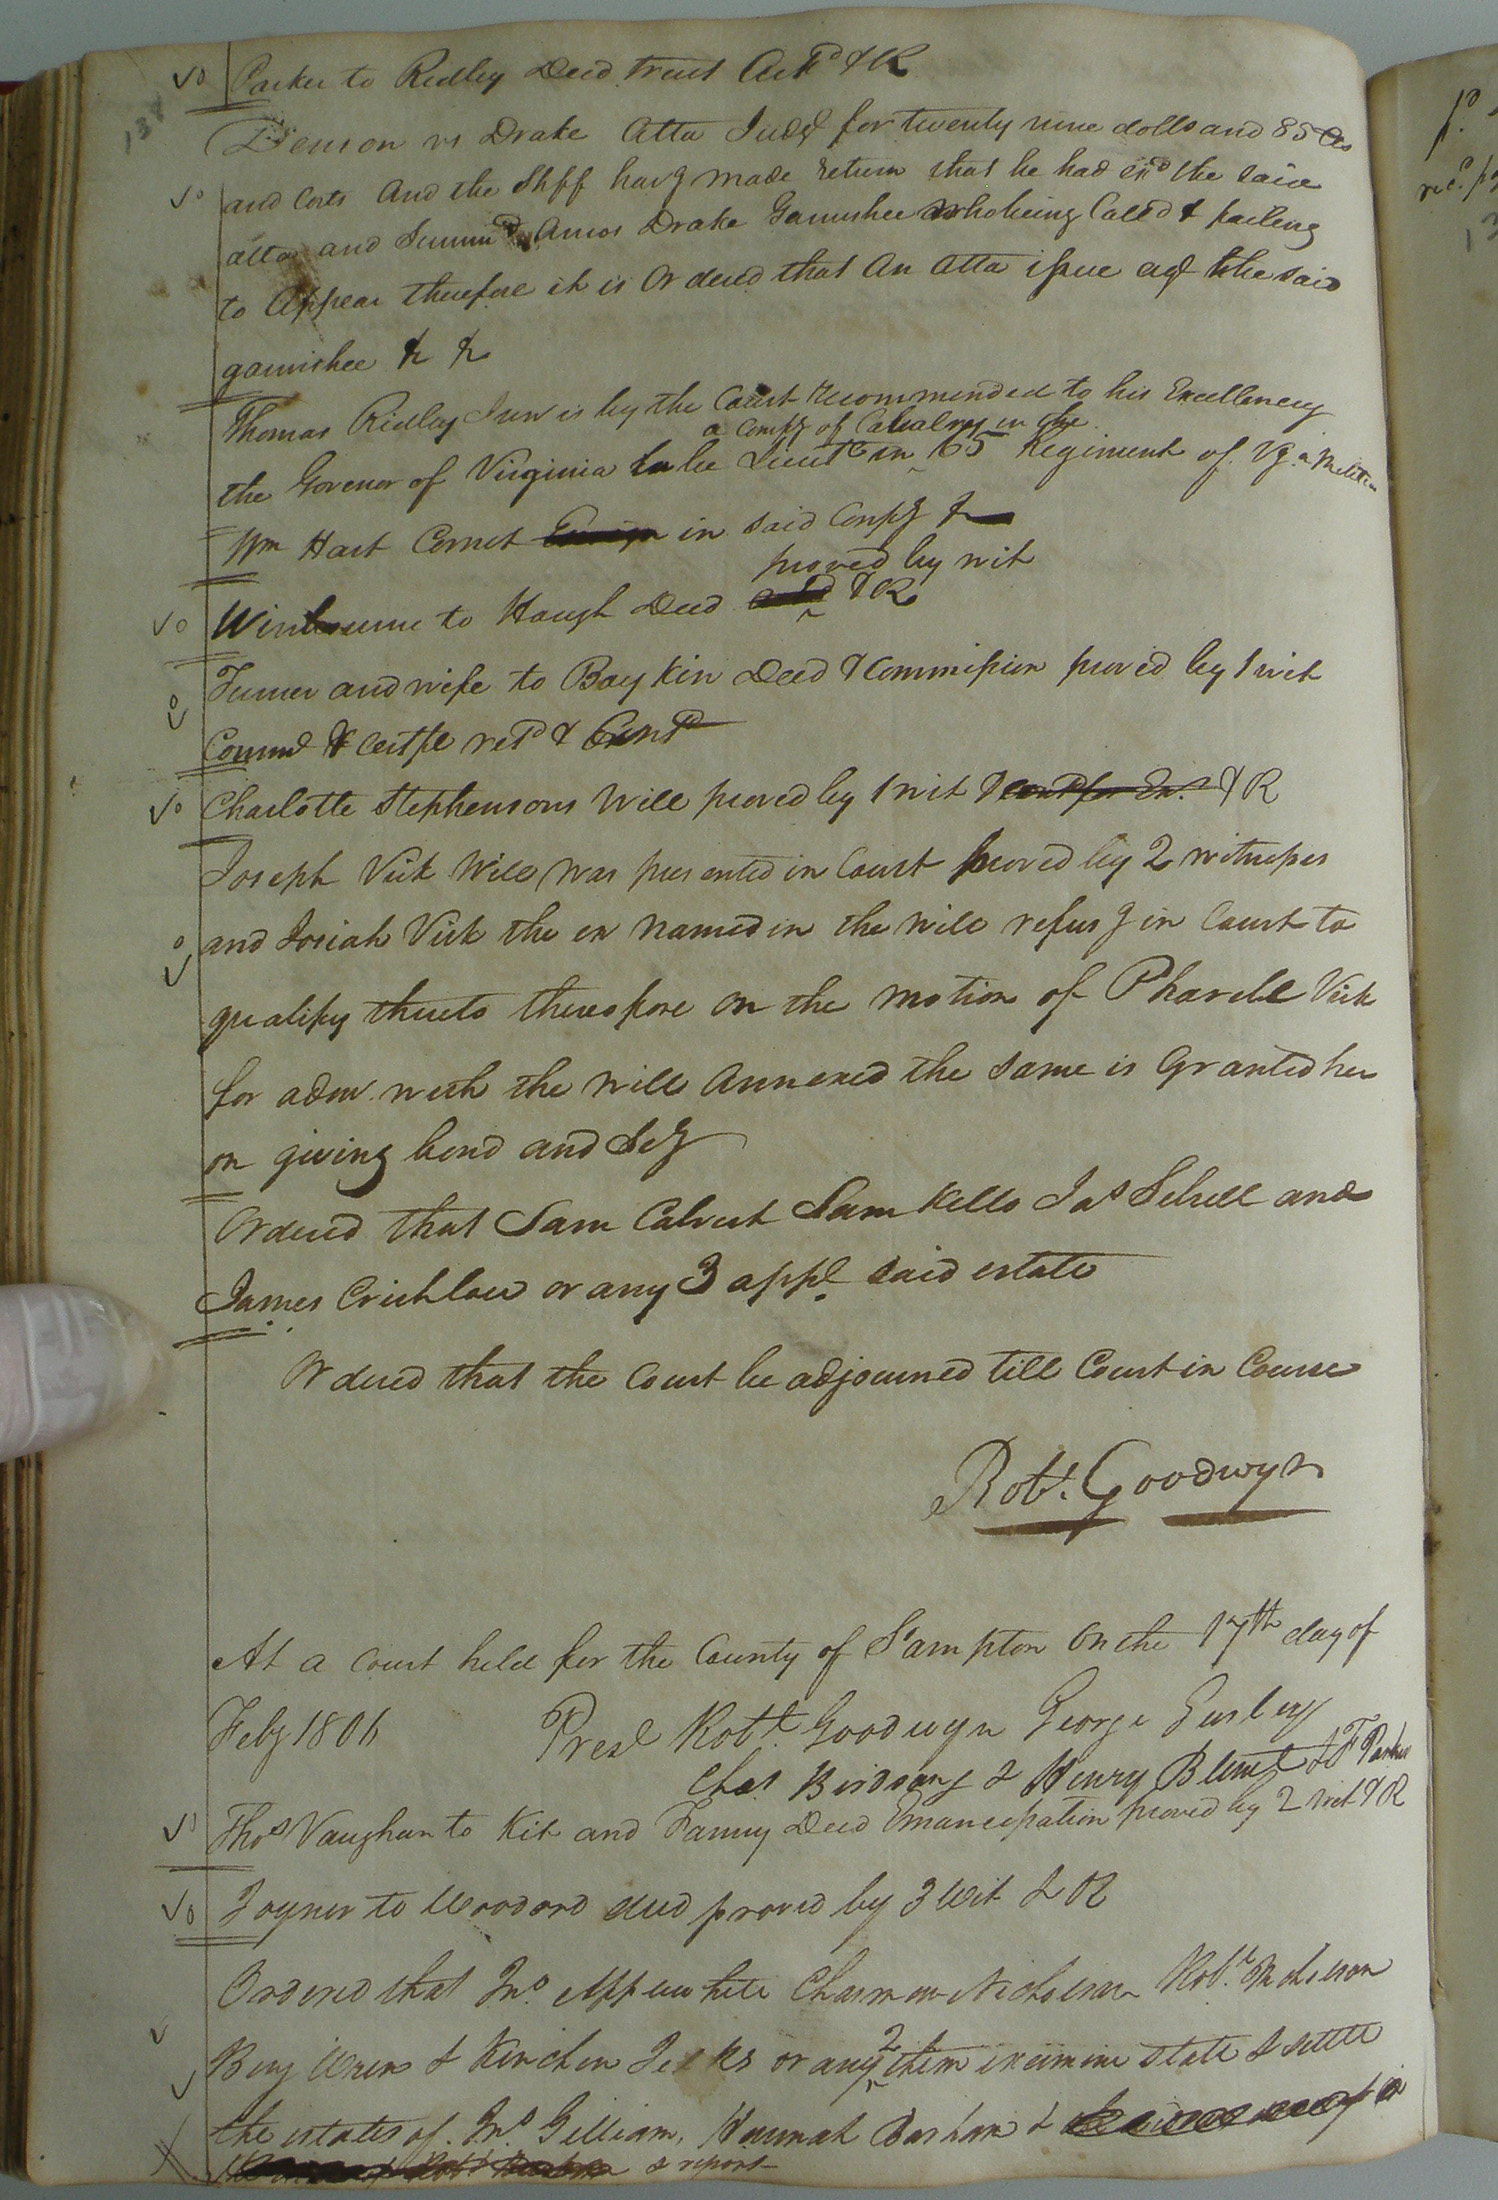 Parker to Ridley Deed trust Ackd & R
Denson vs Drake Atta Judgt for twenty nine dolls and 85 Cts
and Costs And the Shff havg made return that he had exd the said
atta and Summd Amos Drake Garnishee who being Called & failing
to Appear therefore it is Ordered that An atta issue agt the said
garnishee &c &c
Thomas Ridley Jun is by the Court recommended to his Excellency
a Compy of Cavalry in the
the Govenor of Virginia to be Lieut in 65 Regiment of Vga Militia
Wm Hart Cornet in said Compy &
proved by wit
Winbourne to Haugh Deed & R
Turner and wife to Boykin Deed & Commission proved by 1 wit
Commd & Certfe retd & Contd
Charlotte Stephensons Will proved by 1 wit & R
Joseph Vick Will was presented in Court proved by 2 witnesses
and Josiah Vick the ex named in the will refusg in Court to
qualify thereto therefore on the motion of Pharebe Vick
for adm. with the will annexed the same is Granted her
on giving bond and Scy
Ordered that Sam Calvert Sam Kello Jas Sebrell and
James Crichlow or any 3 appe said estate
Ordered that the Court be adjourned till Court in Course
Robt. Goodwyn
At a Court held for the County of S'ampton On the 17th day of
Feby 1806 Prest Robt Goodwyn George Gurley
Chas Birdsong & Henry Blunt & F Parker
Thos Vaughan to Kit and Fanny Deed Emancipation proved by 2 wit & R
Joyner to Woodard deed proved by 3 Wit & R
Ordered that Jno. Applewhite Charmon Nicholson Robt. Nicholson
2
Benj Wren & Kinchen Jelks or any them examine state & settle
the estates of Jno Gilliam, Hannah Basham &
& report
138